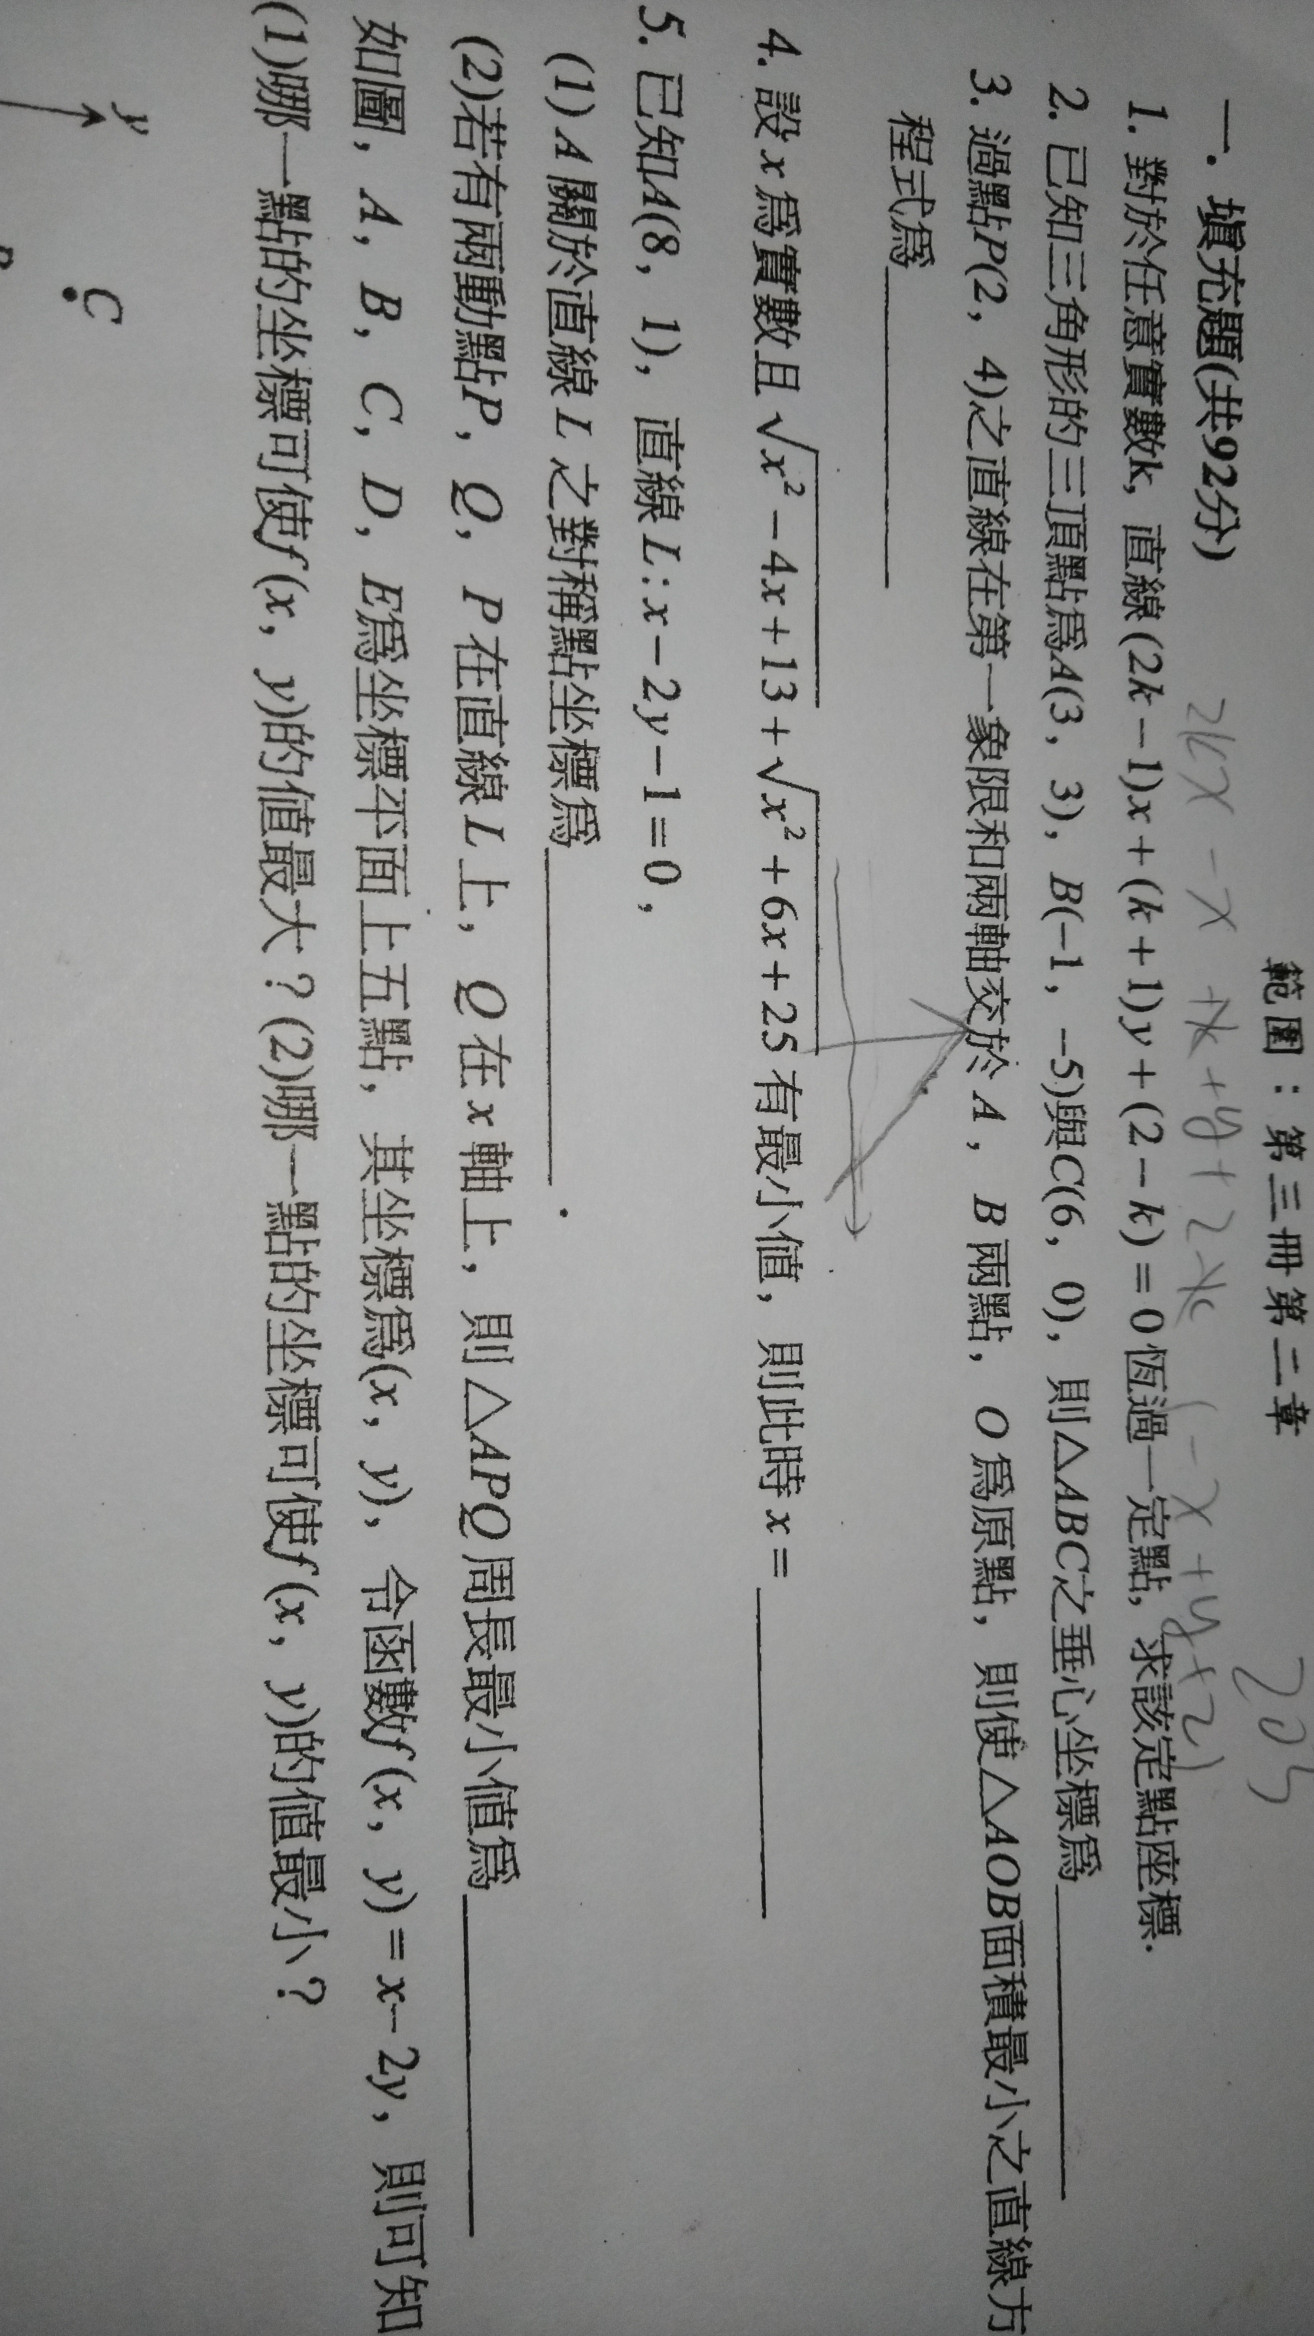 範圍：第三冊第二章
203
一. 填充題(共92分)
2kx - x + k + y + 2 - k (-x+y+2)
1. 對於任意實數k, 直線(2k-1)x+(k+1)y+(2-k)=0恆過一定點, 求該定點座標.
2. 已知三角形的三頂點為A(3, 3), B(-1, -5)與C(6, 0), 則△ABC之垂心坐標為
3. 過點P(2, 4)之直線在第一象限和兩軸交於A, B兩點, O為原點, 則使△AOB面積最小之直線方
程式為
4. 設x為實數且√x²-4x+13+√x²+6x+25有最小值, 則此時x=
5. 已知A(8, 1), 直線L:x-2y-1=0,
(1) A關於直線L之對稱點坐標為 .
(2)若有兩動點P, Q, P在直線L上, Q在x軸上, 則△APQ周長最小值為
如圖, A, B, C, D, E為坐標平面上五點, 其坐標為(x, y), 令函數f(x, y)=x-2y, 則可知
(1)哪一點的坐標可使f(x, y)的值最大? (2)哪一點的坐標可使f(x, y)的值最小?
y
C